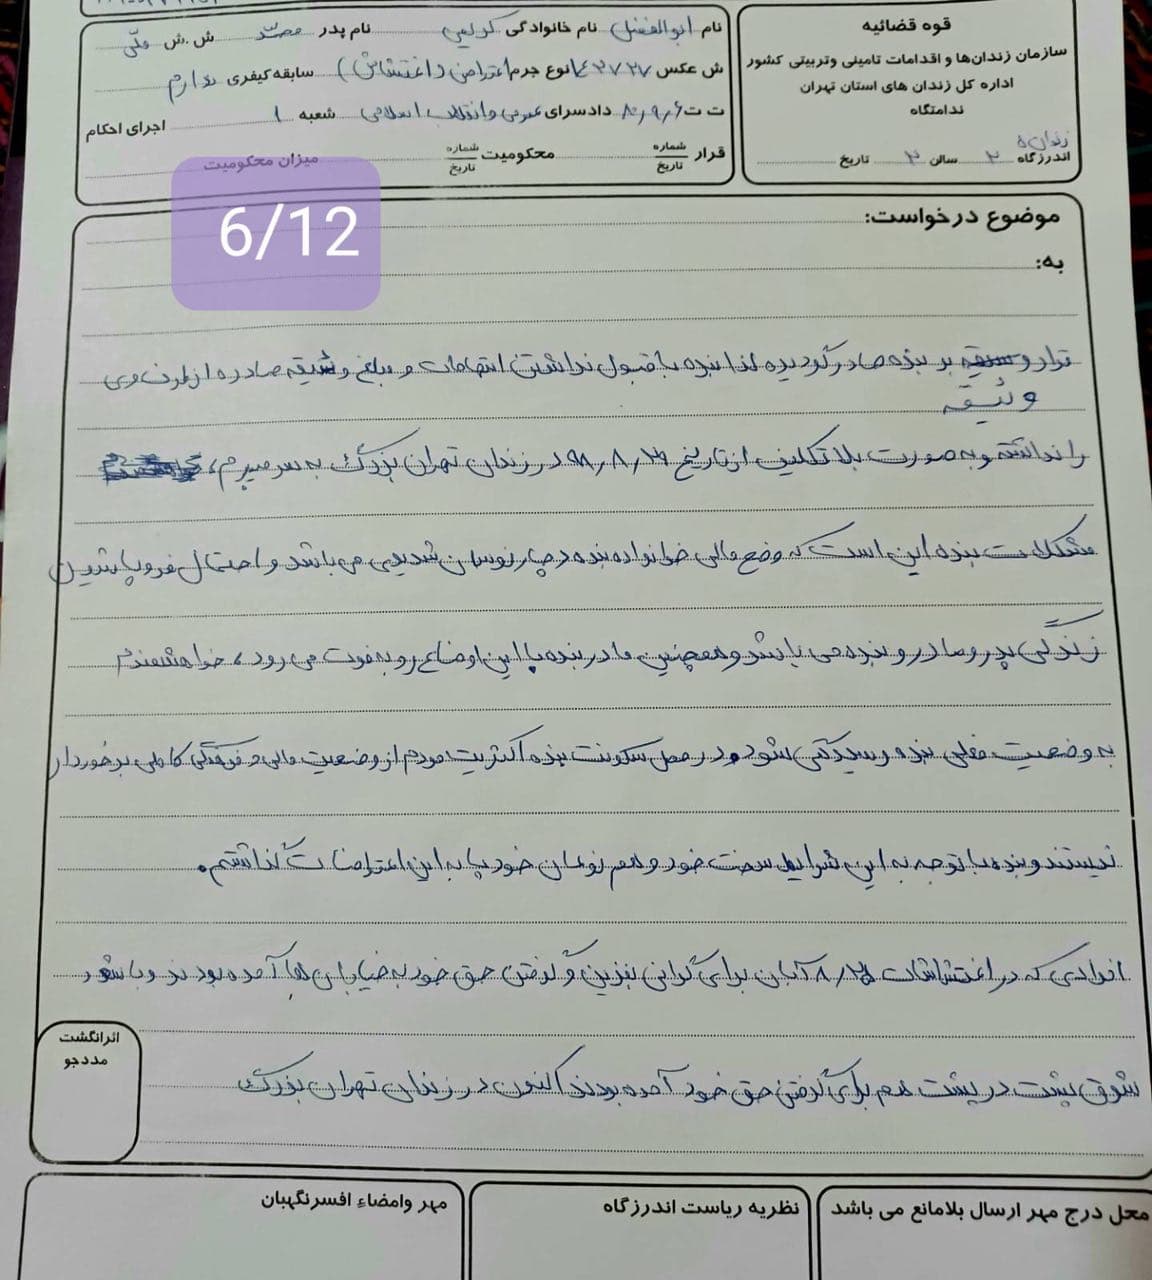 قوه قضائیه
سازمان زندان‌ها و اقدامات تامینی وتربیتی کشور
اداره کل زندان های استان تهران
ندامتگاه
زندان ۵
اندرزگاه ۲ سالن ۲ تاریخ
نام ابوالفضل نام خانوادگی کریمی نام پدر ش .ش ملی
ش عکس ۱۴۳۷۲۷ نوع جرم اعتراض (اغتشاش) سابقه کیفری ندارم
ت ت ۸۰,۹,۶ دادسرای عمومی و انقلاب اسلامی شعبه ۱ اجرای احکام
قرار شماره تاریخ محکومیت شماره تاریخ میزان محکومیت
6/12
موضوع درخواست:
به:
قرار وسیقه بر بنده صادر گردیده لذا بنده با قبول نداشتن اتهامات و مبلغ وثیقه صادره از طرف وی
وثیقه
را نداشته و به صورت بلاتکلیف از تاریخ ۹۸,۸,۲۹ در زندان تهران بزرگ به سر میبرم،
مشکلات بنده این است که وضع مالی خوانواده بنده دچار نوسان شدیدی می باشد و احتمال فروپاشیدن
زندگی پدر و مادر و بنده می باشد و همچنین مادر بنده با این اوضاع رو به فوت می رود، خواهشمندم
به وضعیت فعلی بنده رسیدگی شود و در محل سکونت بنده اکثریت مردم از وضعیت مالی و فرهنگی کاملی برخوردار
نیستند و بنده با توجه به این شرایط سخت خود و هم نوعان خود پا به این اعتراضات گذاشتم.
افرادی که در اغتشاشات ۸,۲۵ آبان برای گرانی بنزین و گرفتن حق خود به خیابان ها آمده بودند و با شور و
شوق پشت در پشت هم برای گرفتن حق خود آمده بودند اکنون در زندان تهران بزرگ
اثرانگشت
مددجو
محل درج مهر ارسال بلامانع می باشد
نظریه ریاست اندرزگاه
مهر وامضاء افسرنگهبان